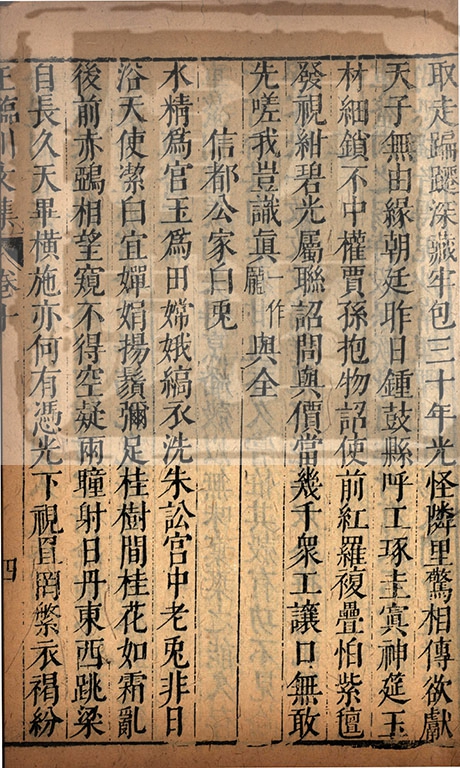 取走踰躔深藏牢包三十年光怪隣里驚相傳欲獻
天子無由緣朝廷昨日鍾鼓縣呼工琢圭寘神筵玉
材細鎖不中權賈孫抱物詔使前紅羅複疊帕紫氊
發視紺碧光屬聯詔問與價當幾千衆工讓口無敢
先嗟我豈識眞一作贋與全
信都公家白兎
水精爲宫玉爲田嫦娥縞衣洗朱訟宫中老兎非日
浴天使潔白宜嬋娟揚鬚彌足桂樹間桂花如霜亂
後前赤鵶相望窺不得空凝兩瞳射日丹東西跳梁
自長久天畢橫施亦何有憑光下視罝罔繁衣褐紛
王臨川文集 卷十 四